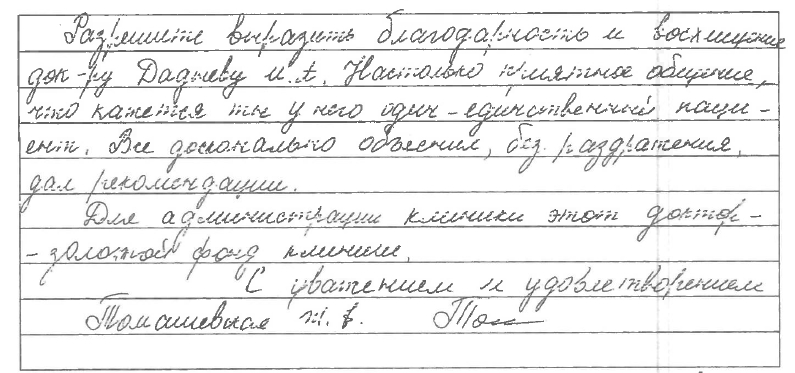 Разрешите выразить благодарность и восхищение
док-ру Дадиеву И.А. Настолько приятное общение,
что кажется ты у него один-единственный паци-
ент. Все досконально объяснил, без раздражения,
дал рекомендации.
Для администрации клиники этот доктор-
- золотой фонд клиники.
С уважением и удовлетворением
Томашевская